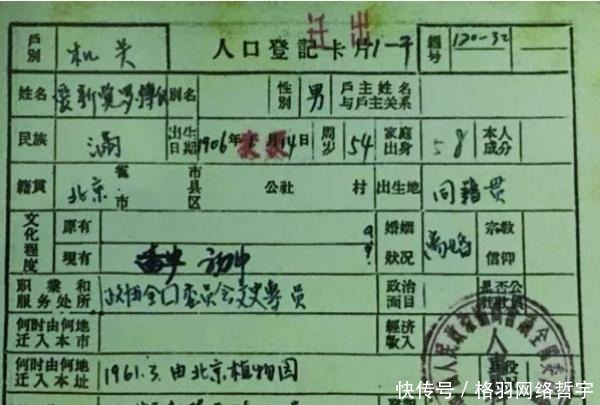 迁出
戶別 机关 人口登記卡片 编号 120-32
姓名 爱新觉罗·溥 别名 性別 男 戶主姓名与戶主关系
民族 滿 出生日期 1906年 月14日 周岁 54 家庭出身 本人成分
籍貫 北京 省市 市县区 公社 村 出生地 同籍貫
文化程度 原有 婚姻狀况 离婚 宗敎信仰
现有 初中
职業和服务处所 政协全 委员会文史專員 政治面目
何时由何地迁入本市 經济收入
何时由何地迁入本址 1961.3.由北京植物园
快传号/格羽网络哲宇